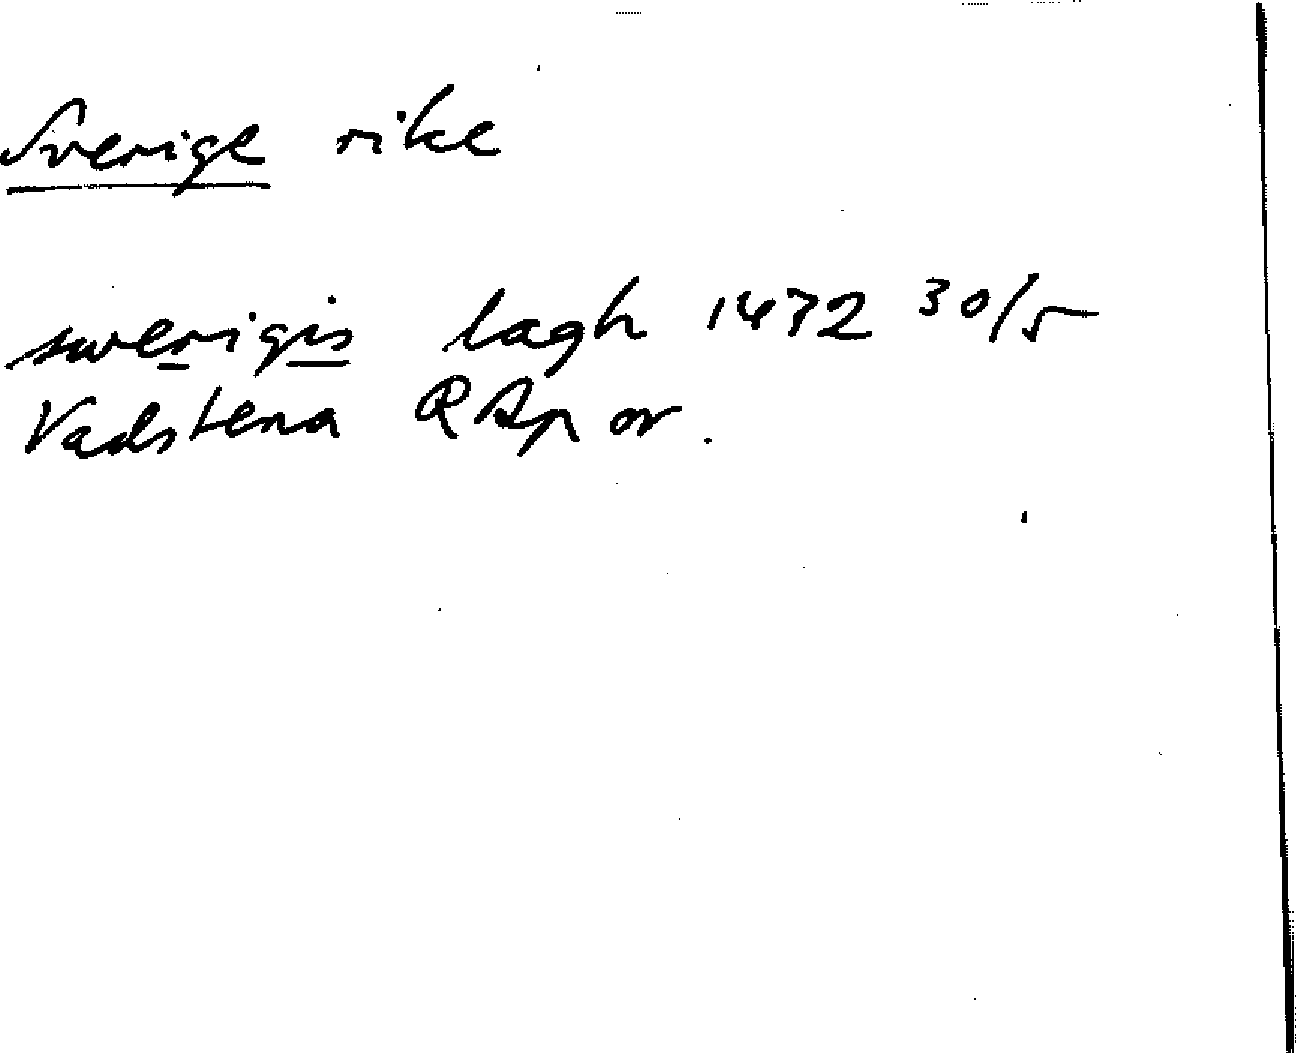 Sverige rike
swerigis lagh 1472 30/5
Vadstena RAp or.